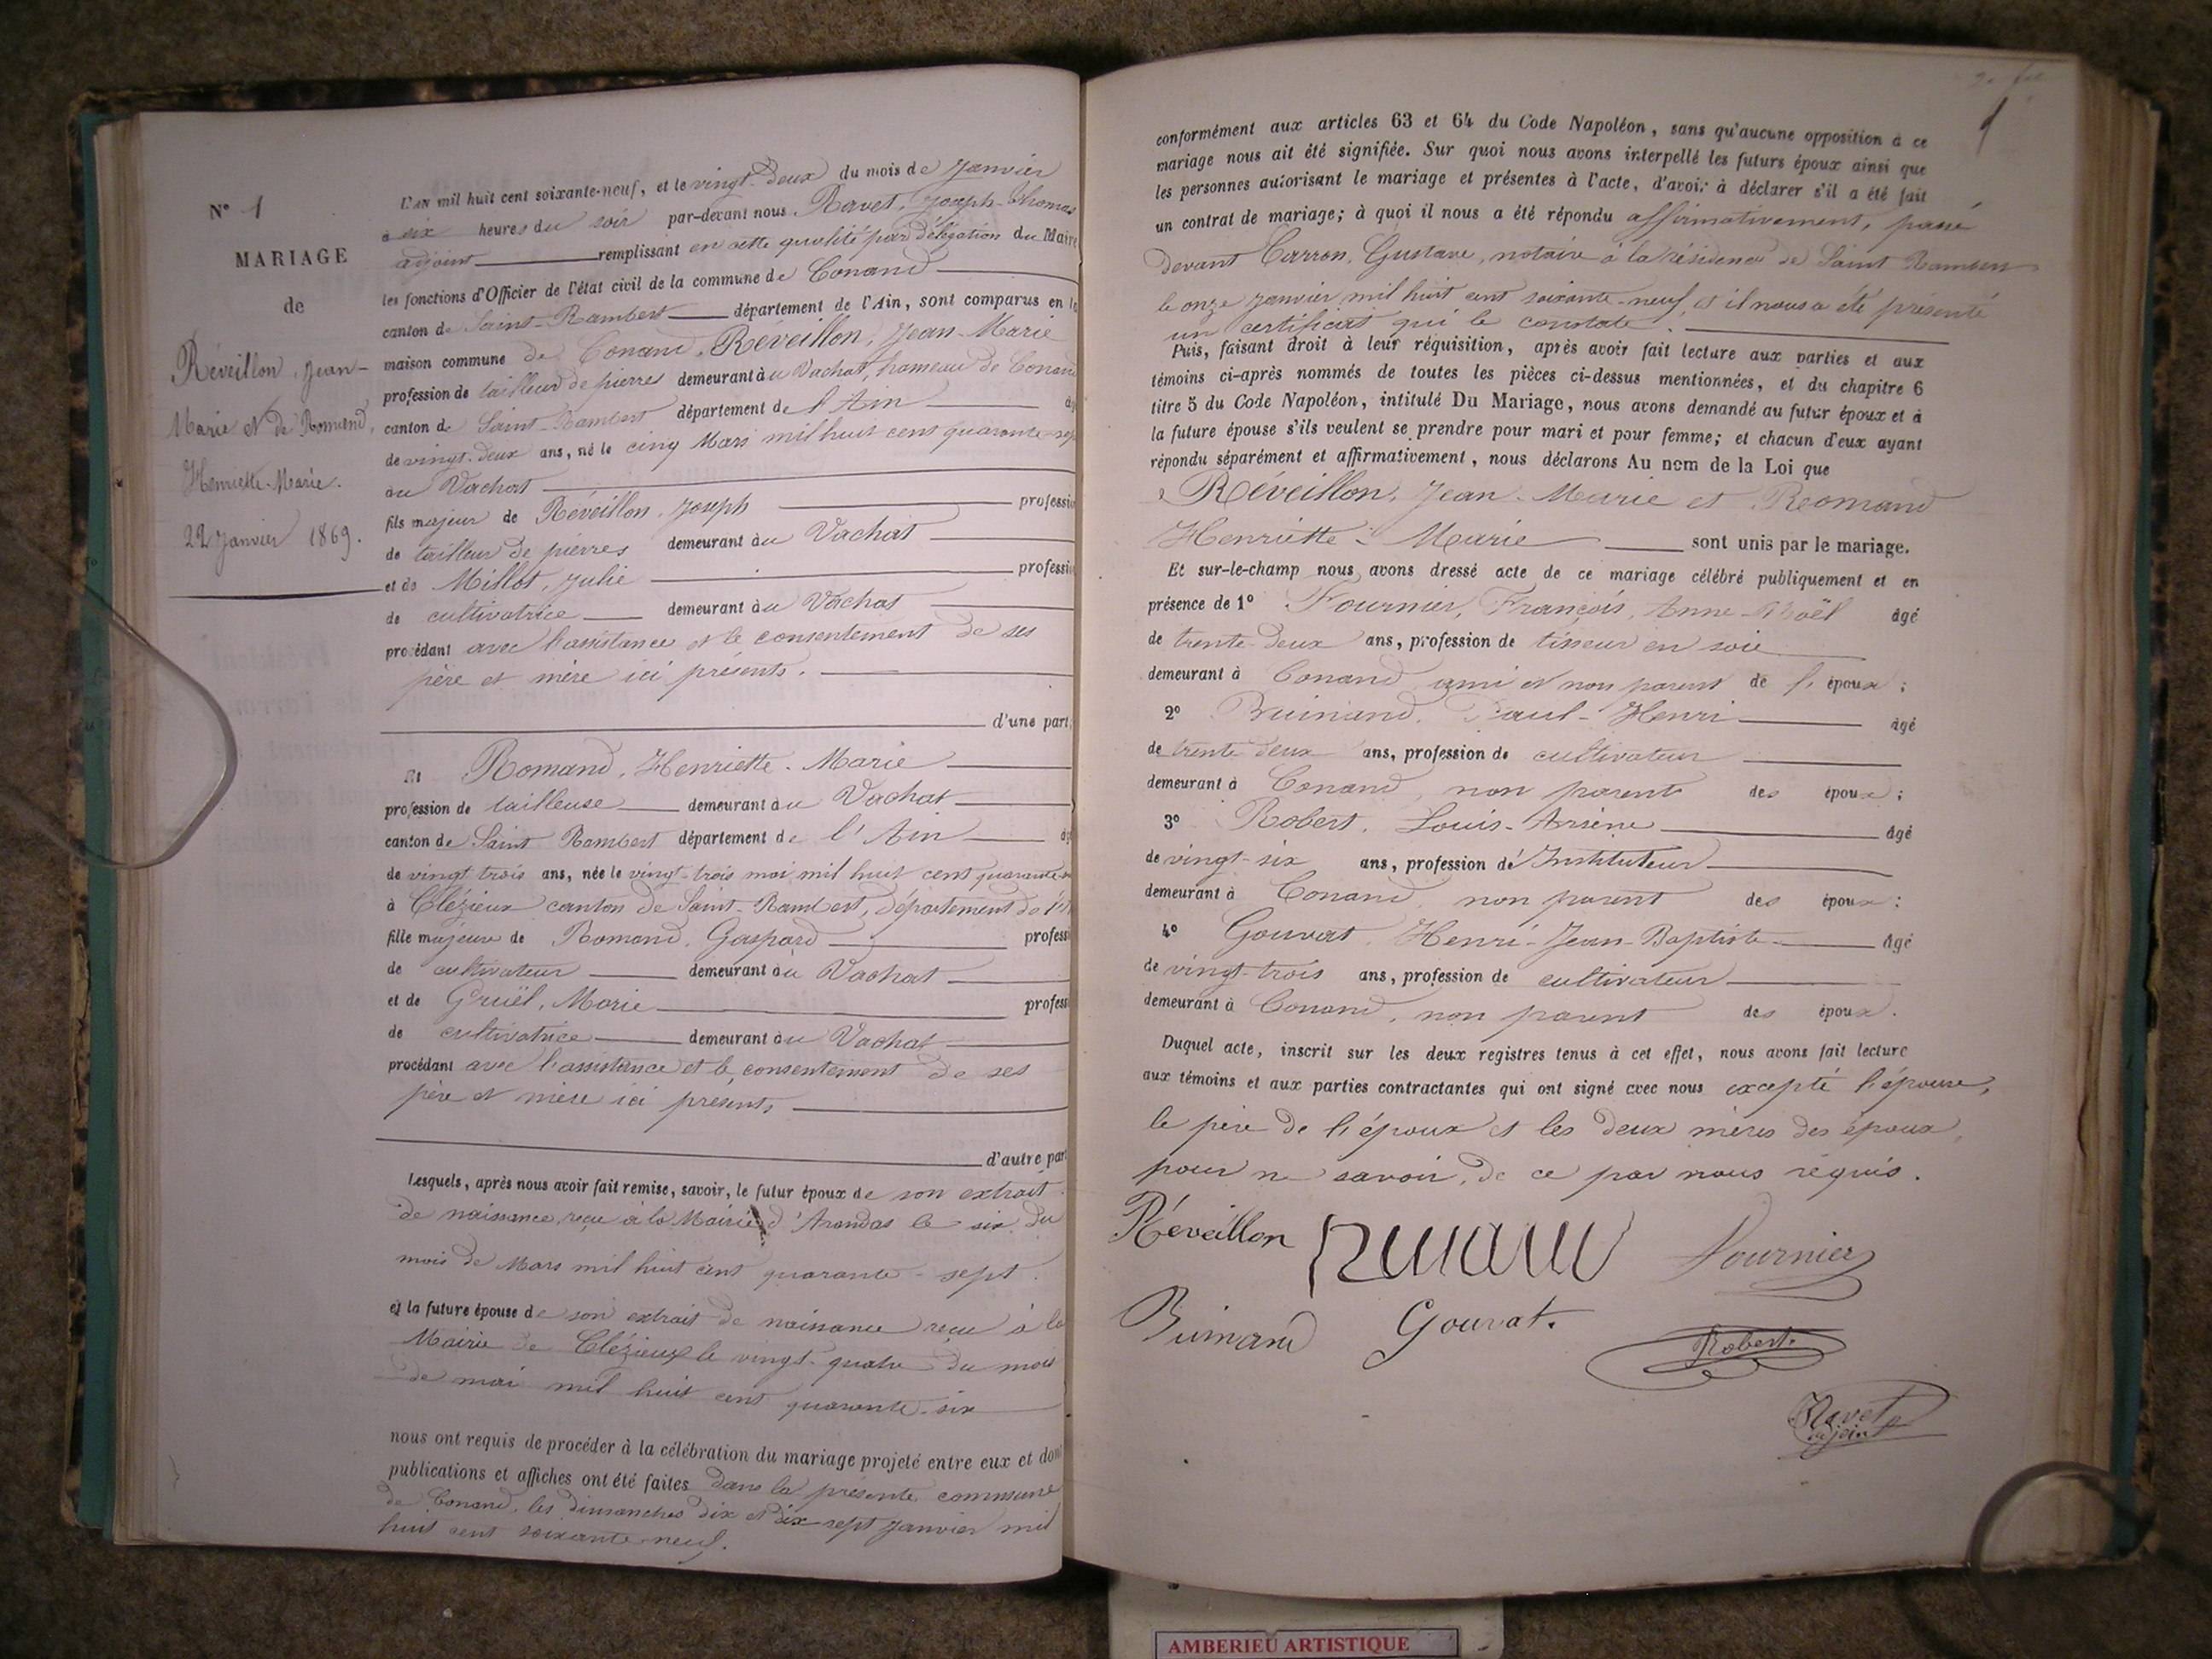 N° 1
MARIAGE
de
Réveillon, Jean-
Marie et de Romand,
Henriette-Marie.
22 Janvier 1869.
L'AN mil huit cent soixante-neuf, et le vingt-deux du mois de Janvier
à six heures du soir par-devant nous Ravet, Joseph-Thomas
adjoint remplissant en cette qualité par délégation du Maire
les fonctions d'Officier de l'état civil de la commune de Conand
canton de Saint-Rambert département de l'Ain, sont comparus en la
maison commune de Conand, Réveillon, Jean-Marie
profession de tailleur de pierres demeurant au Vachat, hameau de Conand
canton de Saint-Rambert département de l'Ain
de vingt-deux ans, né le cinq Mars mil huit cent quarante-sept
au Vachat
fils majeur de Réveillon, Joseph professio
de tailleur de pierres demeurant au Vachat
et de Millot, Julie professio
de cultivatrice demeurant au Vachat
procédant avec l'assistance et le consentement de ses
père et mère ici présents.
d'une part;
Et Romand, Henriette-Marie
profession de tailleuse demeurant au Vachat
canton de Saint Rambert département de l'Ain
de vingt trois ans, née le vingt-trois mai mil huit cent quarante
à Clézieux canton de Saint-Rambert, département de l'
fille majeure de Romand, Gaspard professi
de cultivateur demeurant au Vachat
et de Gruël, Marie professi
de cultivatrice demeurant au Vachat
procédant avec l'assistance et le consentement de ses
père et mère ici présents,
d'autre part
Lesquels, après nous avoir fait remise, savoir, le futur époux de son extrait
de naissance, reçu à la Mairie d'Arandas le six du
mois de Mars mil huit cent quarante-sept.
et la future épouse de son extrait de naissance reçu à la
Mairie de Clézieux le vingt-quatre du mois
de mai mil huit cent quarante-six
nous ont requis de procéder à la célébration du mariage projeté entre eux et dont
publications et affiches ont été faites dans la présente commune
de Conand, les dimanches dix et dix-sept Janvier mil
huit cent soixante-neuf.
conformément aux articles 63 et 64 du Code Napoléon, sans qu'aucune opposition à ce
mariage nous ait été signifiée. Sur quoi nous avons interpellé les futurs époux ainsi que
les personnes autorisant le mariage et présentes à l'acte, d'avoir à déclarer s'il a été fait
un contrat de mariage; à quoi il nous a été répondu affirmativement, passé
devant Carron, Gustave, notaire à la résidence de Saint Rambert
le onze Janvier mil huit cent soixante-neuf, et il nous a été présenté
un certificat qui le constate.
Puis, faisant droit à leur réquisition, après avoir fait lecture aux parties et aux
témoins ci-après nommés de toutes les pièces ci-dessus mentionnées, et du chapitre 6
titre 5 du Code Napoléon, intitulé Du Mariage, nous avons demandé au futur époux et à
la future épouse s'ils veulent se prendre pour mari et pour femme; et chacun d'eux ayant
répondu séparément et affirmativement, nous déclarons Au nom de la Loi que
Réveillon, Jean-Marie et Romand
Henriette-Marie sont unis par le mariage.
Et sur-le-champ nous avons dressé acte de ce mariage célébré publiquement et en
présence de 1° Fournier, François, Anne-Noël âgé
de trente-deux ans, profession de tisseur en soie
demeurant à Conand ami et non parent de l'époux;
2° Buinand, Paul-Henri âgé
de trente deux ans, profession de cultivateur
demeurant à Conand, non parent des époux;
3° Robert, Louis-Arsène âgé
de vingt-six ans, profession d'Instituteur
demeurant à Conand, non parent des époux;
4° Gouvat, Henri-Jean-Baptiste âgé
de vingt-trois ans, profession de cultivateur
demeurant à Conand, non parent des époux.
Duquel acte, inscrit sur les deux registres tenus à cet effet, nous avons fait lecture
aux témoins et aux parties contractantes qui ont signé avec nous excepté l'épouse,
le père de l'époux et les deux mères des époux,
pour ne savoir, de ce par nous requis.
Réveillon Fournier
Buinand Gouvat. Robert
Ravet
adjoint
AMBERIEU ARTISTIQUE